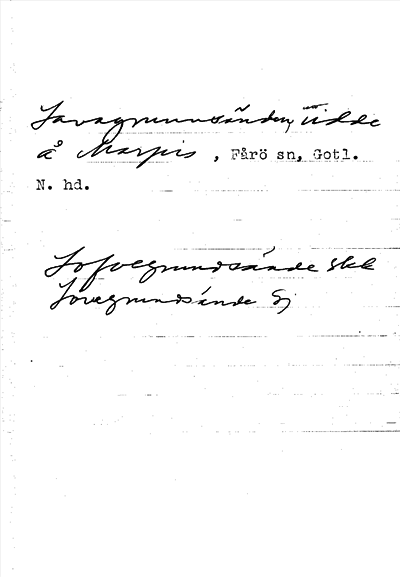 Lavagrunnsände, udde
å Marpis, Fårö sn, Gotl.
N. hd.
Lofvegrundsände skk
Lovegrundsände Sj